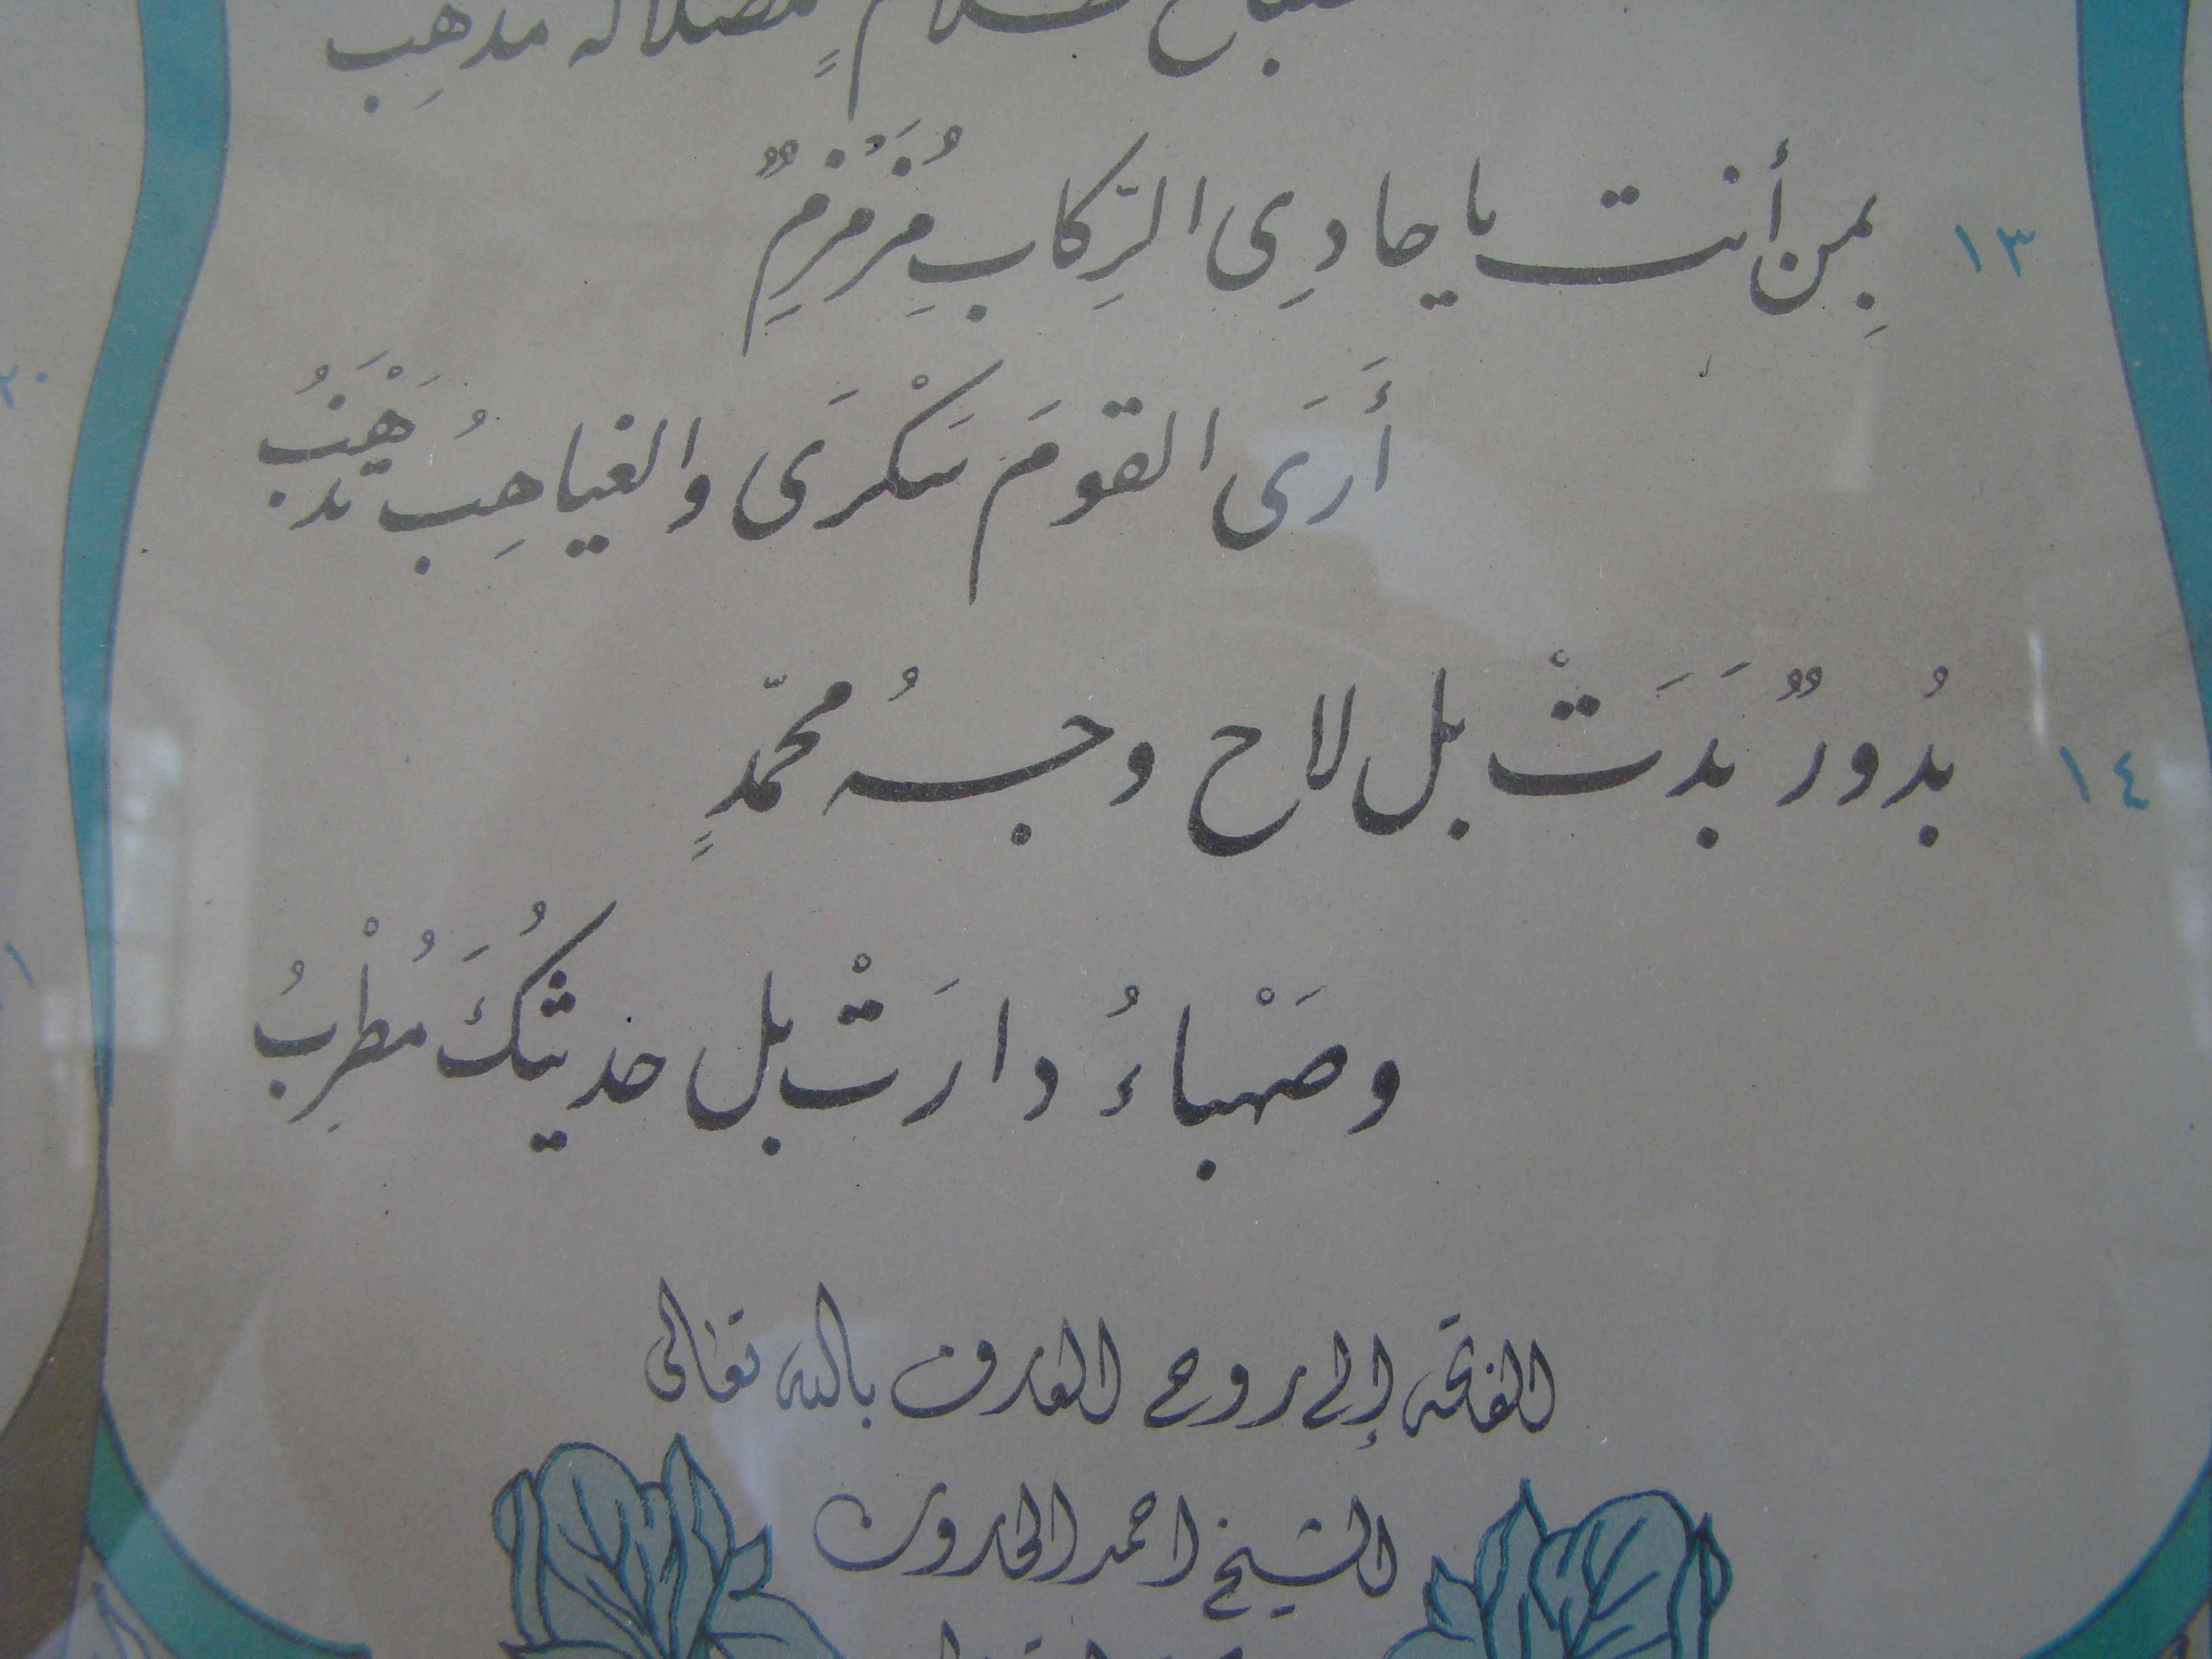 مدهِب
١٣ بِمن أنت يا حادِى الرِّكابِ مُزَمْزِمٌ
أَرَى القومَ سَكْرَى والغياهِبُ تَدْهَبُ
١٤ بُدورٌ بَدَتْ بل لاح وجهُ محمّدٍ
وصَهْباءُ دارَتْ بل حديثُكَ مُطْرِبُ
الفاتحة إلى روح العارف بالله تعالى
الشيخ احمد الحارون